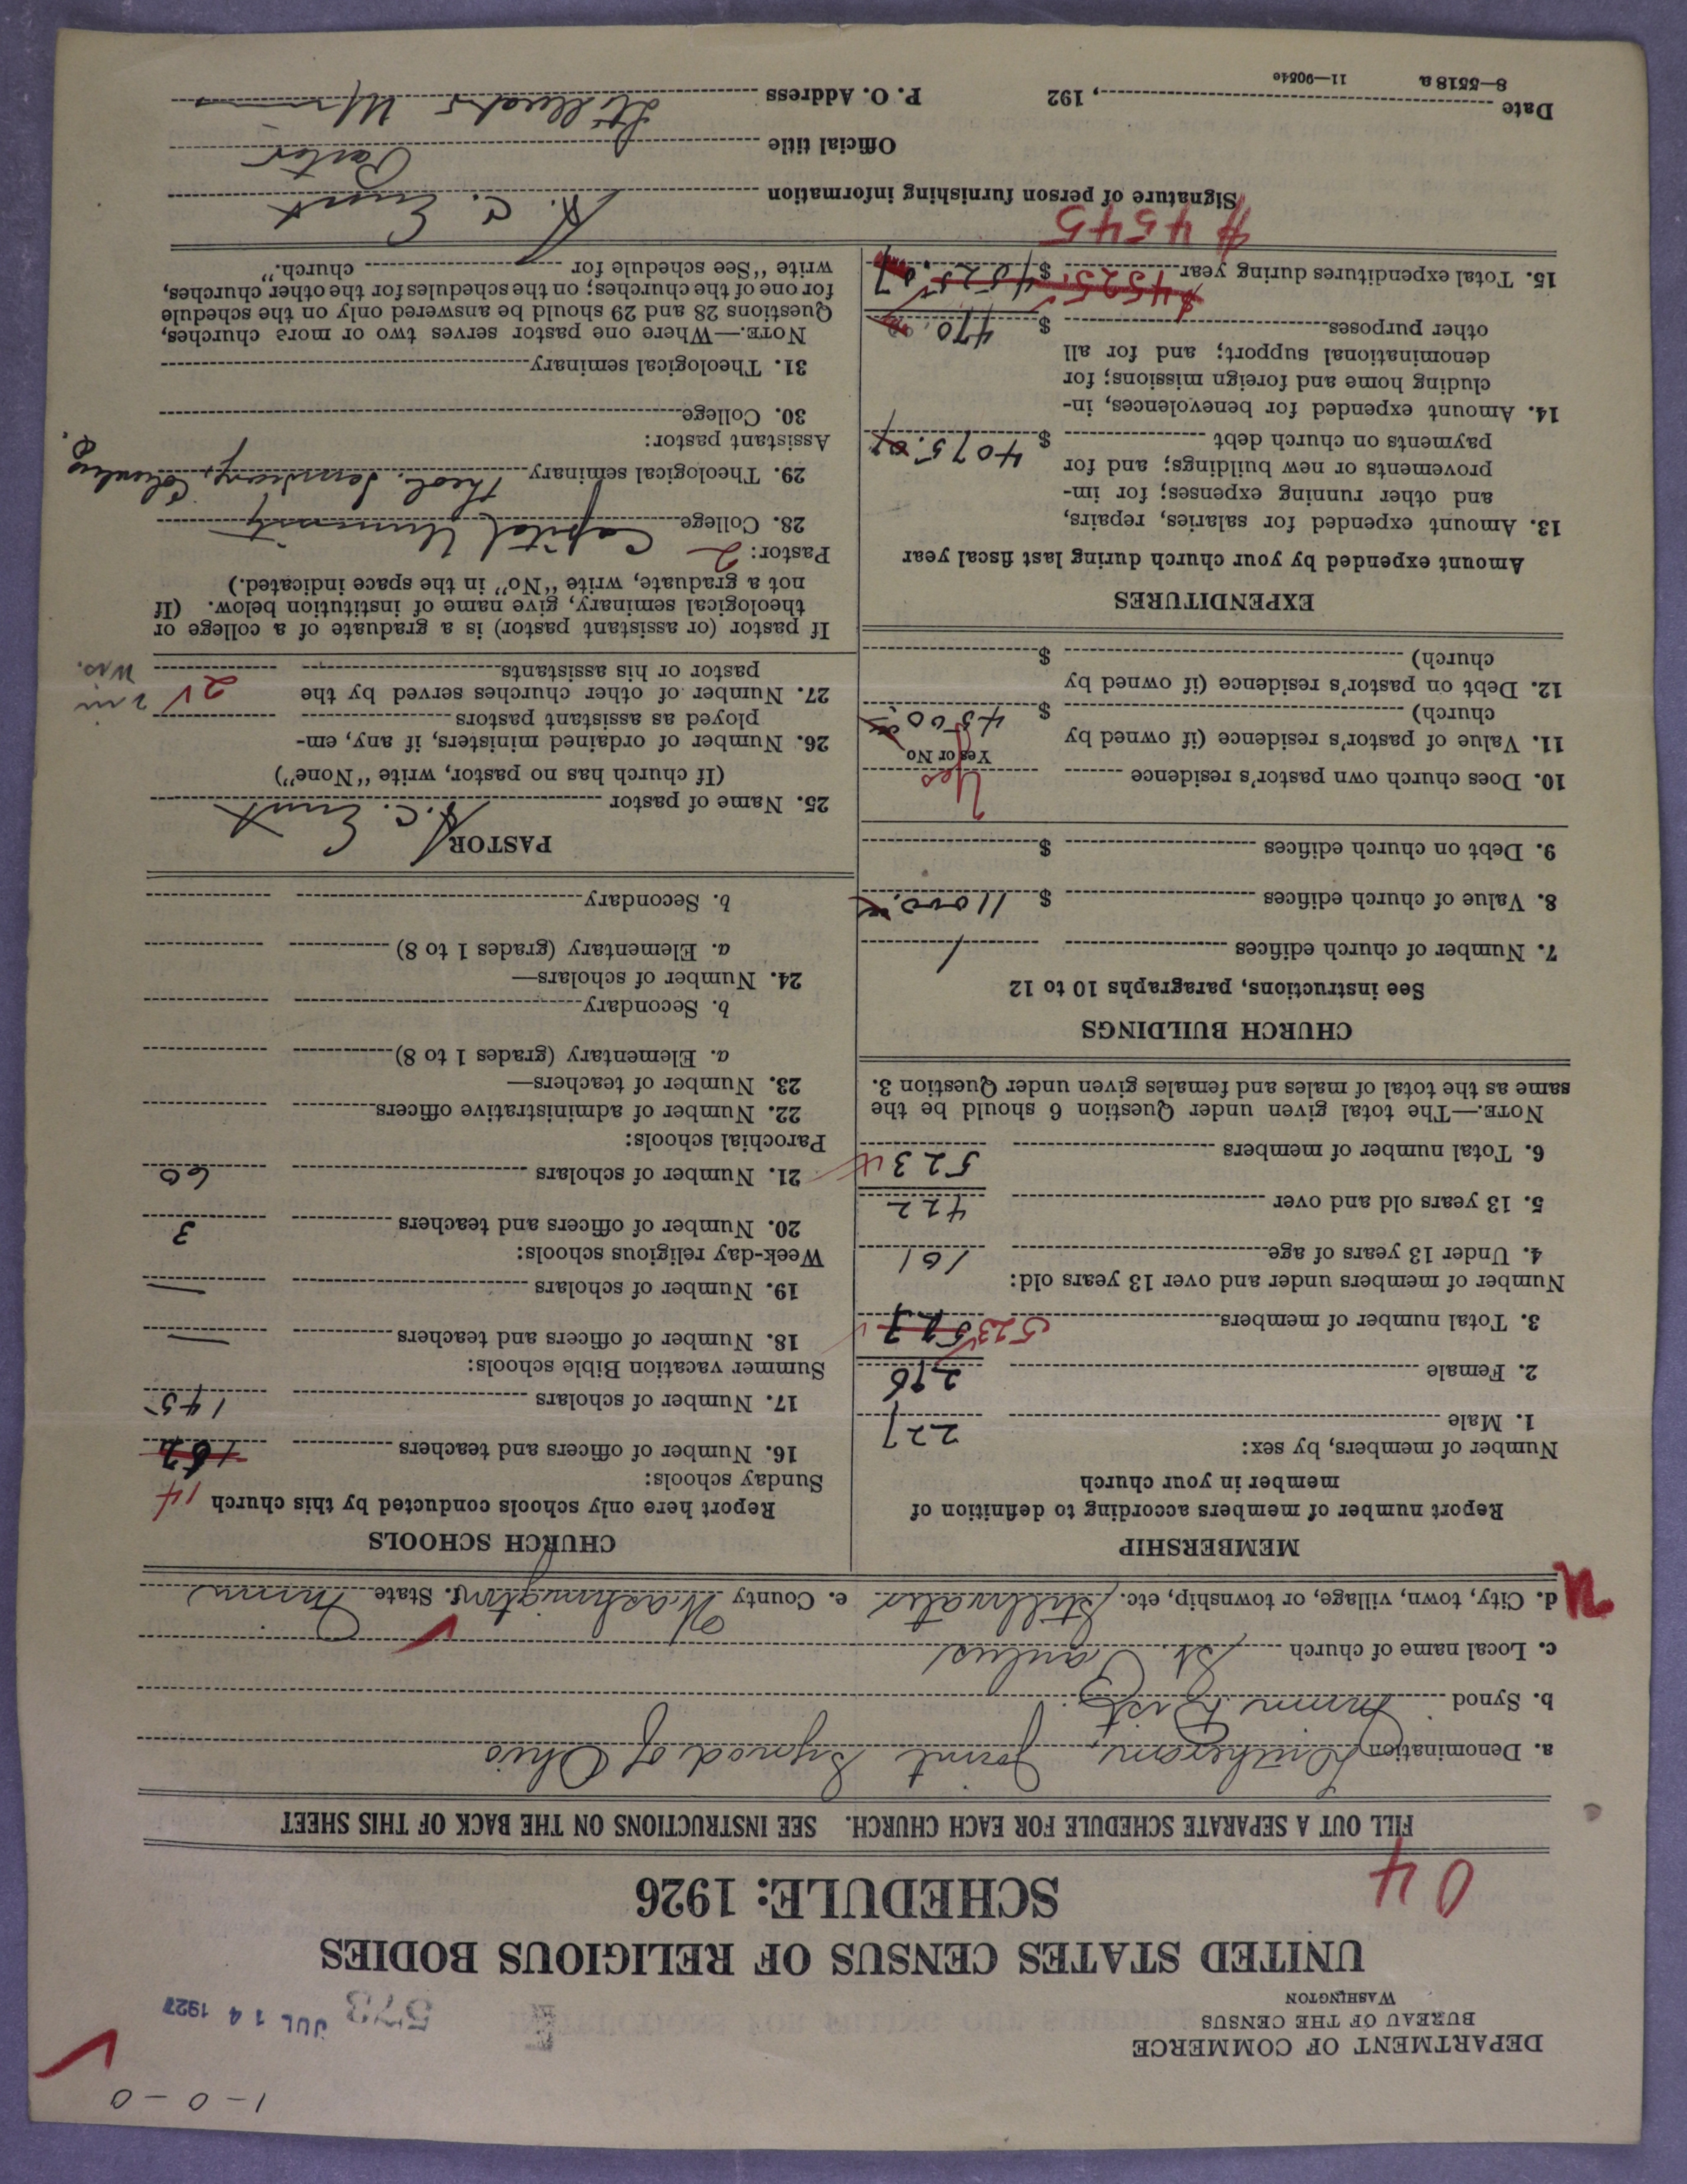 1-0-0
DEPARTMENT OF COMMERCE
BUREAU OF THE CENSUS
WASHINGTON
573 JUL 14 1927
UNITED STATES CENSUS OF RELIGIOUS BODIES
SCHEDULE: 1926
04
FILL OUT A SEPARATE SCHEDULE FOR EACH CHURCH. SEE INSTRUCTIONS ON THE BACK OF THIS SHEET
a. Denomination Lutheran, Joint Synod of Ohio
b. Synod Minn. Dist.
c. Local name of church St. Paulus
d. City, town, village, or township, etc. Stillwater e. County Washington f. State Minn
MEMBERSHIP
Report number of members according to definition of
member in your church
Number of members, by sex:
1. Male 227
2. Female 296
3. Total number of members 523
Number of members under and over 13 years old:
4. Under 13 years of age 101
5. 13 years old and over 422
6. Total number of members 523
NOTE.—The total given under Question 6 should be the
same as the total of males and females given under Question 3.
CHURCH BUILDINGS
See instructions, paragraphs 10 to 12
7. Number of church edifices 1
8. Value of church edifices $ 11000.
9. Debt on church edifices $
10. Does church own pastor's residence Yes
Yes or No
11. Value of pastor's residence (if owned by
church) $ 4500.
12. Debt on pastor's residence (if owned by
church) $
EXPENDITURES
Amount expended by your church during last fiscal year
13. Amount expended for salaries, repairs,
and other running expenses; for im-
provements or new buildings; and for
payments on church debt $ 4075.07
14. Amount expended for benevolences, in-
cluding home and foreign missions; for
denominational support; and for all
other purposes $ 470.
$4525
15. Total expenditures during year $ 4525.07
$4545
CHURCH SCHOOLS
Report here only schools conducted by this church
Sunday schools: 14
16. Number of officers and teachers
17. Number of scholars 145
Summer vacation Bible schools:
18. Number of officers and teachers —
19. Number of scholars —
Week-day religious schools:
20. Number of officers and teachers 3
21. Number of scholars 60
Parochial schools:
22. Number of administrative officers
23. Number of teachers—
a. Elementary (grades 1 to 8)
b. Secondary
24. Number of scholars—
a. Elementary (grades 1 to 8)
b. Secondary
PASTOR
25. Name of pastor A. C. Ernst
(If church has no pastor, write "None")
26. Number of ordained ministers, if any, em-
ployed as assistant pastors
27. Number of other churches served by the
pastor or his assistants 2 2 in Wis.
If pastor (or assistant pastor) is a graduate of a college or
theological seminary, give name of institution below. (If
not a graduate, write "No" in the space indicated.)
Pastor: 2
28. College Capital University
29. Theological seminary Theol. Seminary, Columbus, O.
Assistant pastor:
30. College
31. Theological seminary
NOTE.—Where one pastor serves two or more churches,
Questions 28 and 29 should be answered only on the schedule
for one of the churches; on the schedules for the other churches,
write "See schedule for church."
Signature of person furnishing information A. C. Ernst
Official title Pastor
Date , 192 P. O. Address Stillwater Minn
8—5518 a 11—9054c